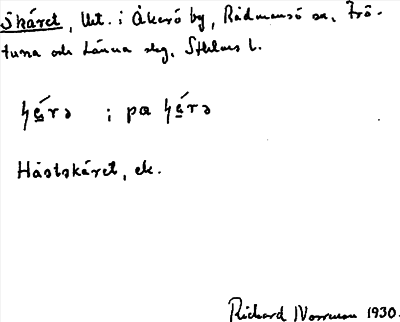 Skäret, Utt. i Åkerö by, Rådmansö sn, Frö-
tuna och Länna slg, Sthlms l.
ɧɛ́rə ; pɑ ɧɛ́rə
Hästskäret, ek.
Richard Norrman 1930.